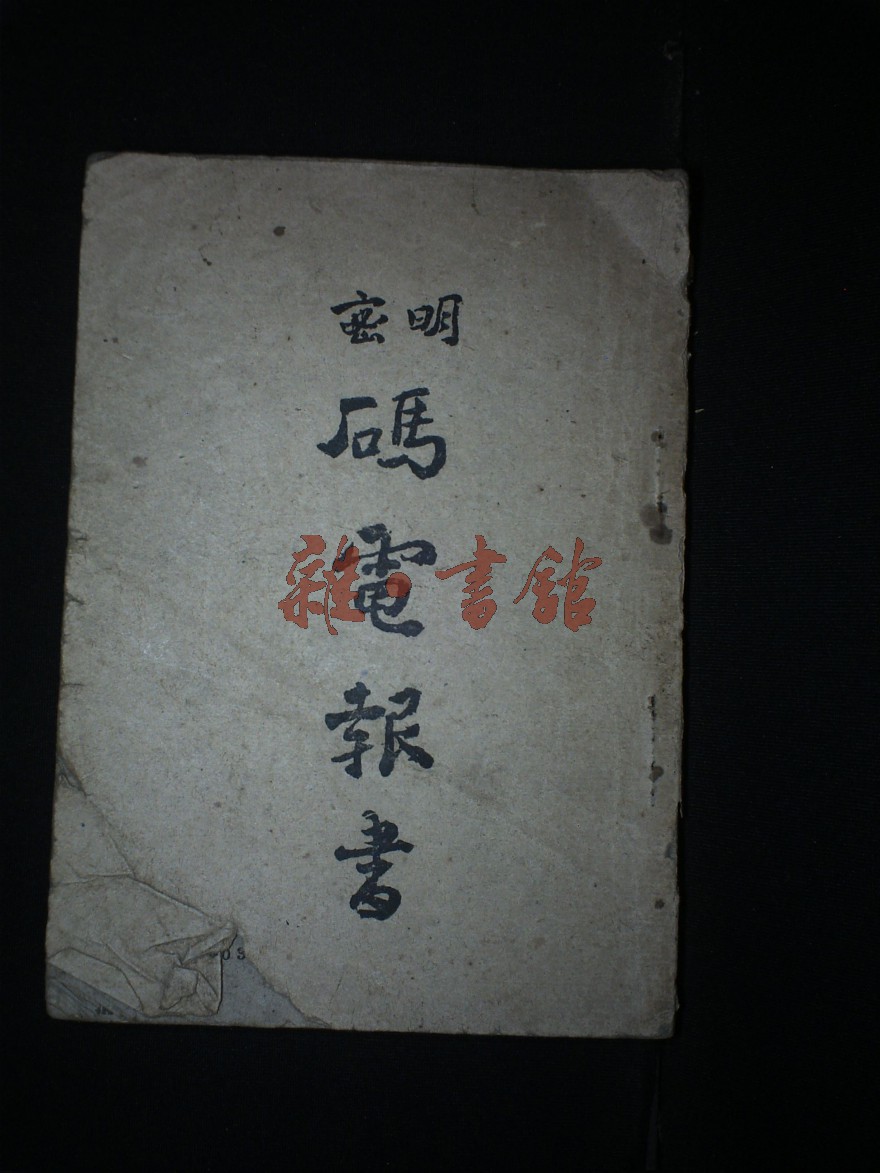 明密
碼電報書
雜·書館
03